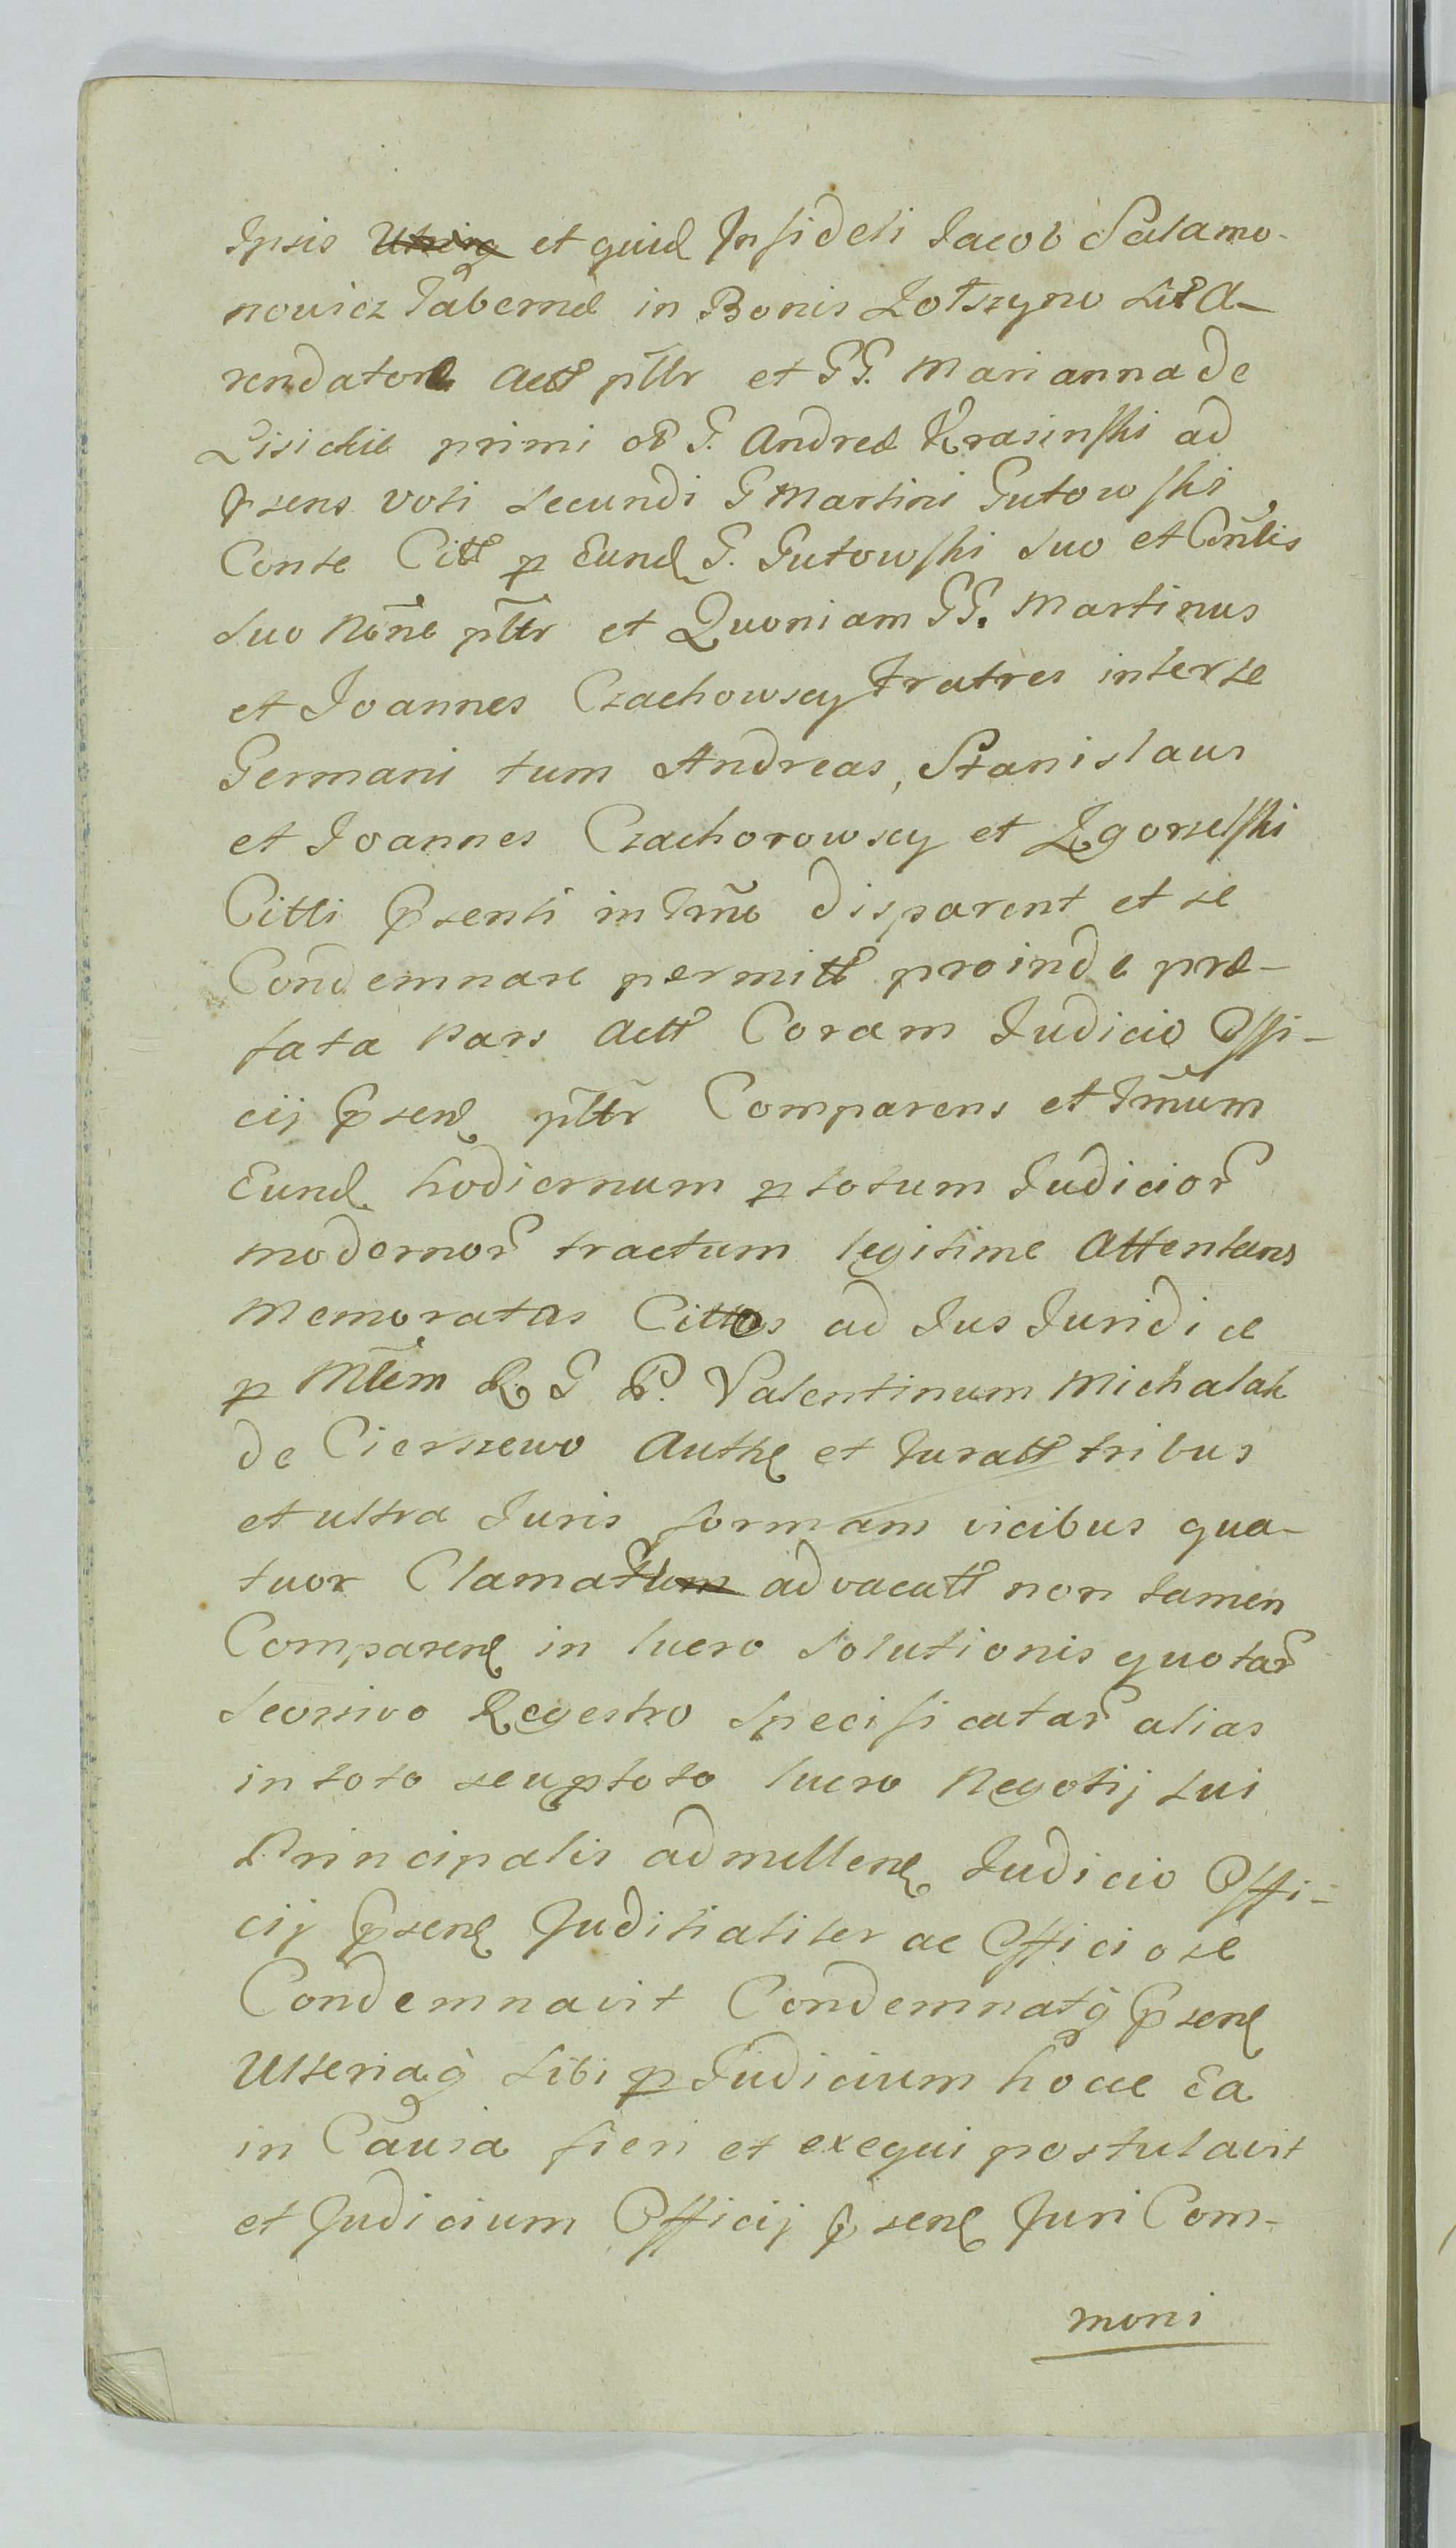 Ipsis et quid Infideli Jacob Salamo-
nowicz Tabernæ in Bonis Zołszyno sit A-
rendatore Actt pltr et GG. Marianna de
Lisickie primi ot G. Andreæ Krasinski ad
Psens voti secundi G Martini Gutowski
Conte Citt p Eund G. Gutowski suo et Conlis
suo Nõne pltr et Quoniam GG. Martinus
et Joannes Czachowscy Fratres inter se
Germani tum Andreas, Stanislaus
et Joannes Czachorowscy et Zgorzelski
Citti Psenti in Tm̃o disparent et se
Condemnare permitt proinde præ-
fata Pars Actt Coram Judicio Offi-
cij Psen pltr Comparens et Tm̃um
Eund hodiernum p totum Judicior
modernor tractum legitime Attentans
Memoratos Cittos ad Jus Juridice
p Mltem R G P. Valentinum Michalak
de Cierszewo Auth et Juratt tribus
et ultra Juris formam vicibus qua-
tuor Clamat advocatt non tamen
Comparen in lucro solutionis quotar
seorsivo Regestro specificatar alias
in toto seu p toto lucro Negotij sui
Principalis admitten Judicio Offi-
cij Psen Juditialiter ac Officiose
Condemnavit Condemnatq Psen
Ulteriaq sibi p Judicium hocce Ea
in Causa fieri et exequi postulavit
et Judicium Officij Psen Juri Com-
moni